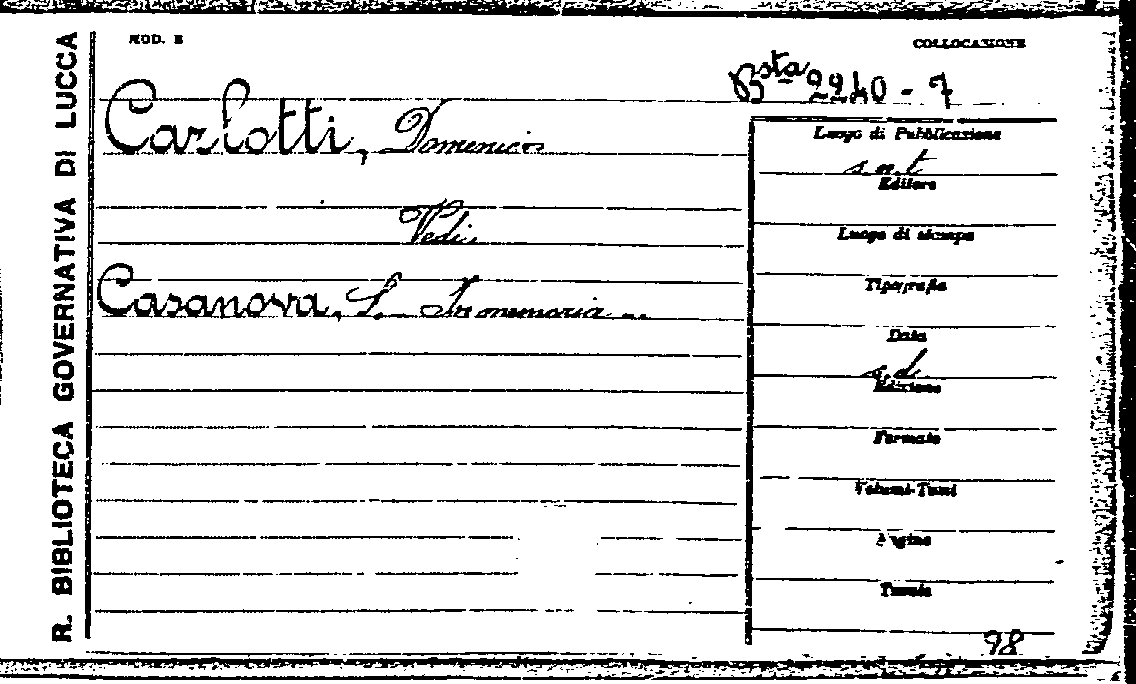 R. BIBLIOTECA GOVERNATIVA DI LUCCA
MOD. B
COLLOCAZIONE
Bsta 2240 - 7
Carlotti, Domenico
Vedi
Casanova, L. In memoria ...
Luogo di Pubblicazione
s.n.t
Editore
Luogo di stampa
Tipografia
Data
s.d.
Edizione
Formato
Volumi-Tomi
Pagine
Tavole
98